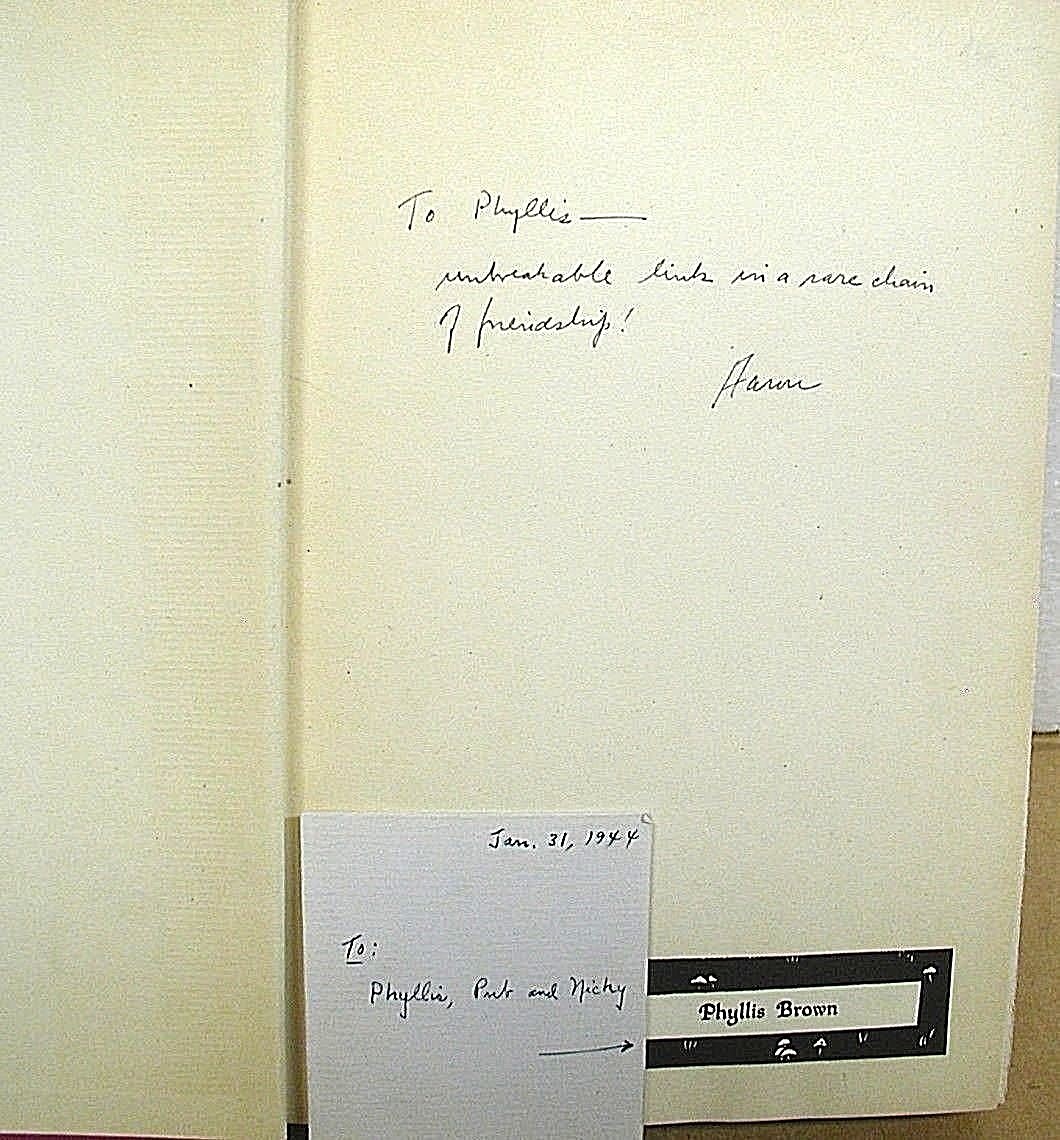 To Phyllis —
unbreakable link in a rare chain
of friendship!
Aaron
Jan. 31, 1944
To:
Phyllis, and Nicky
Phyllis Brown